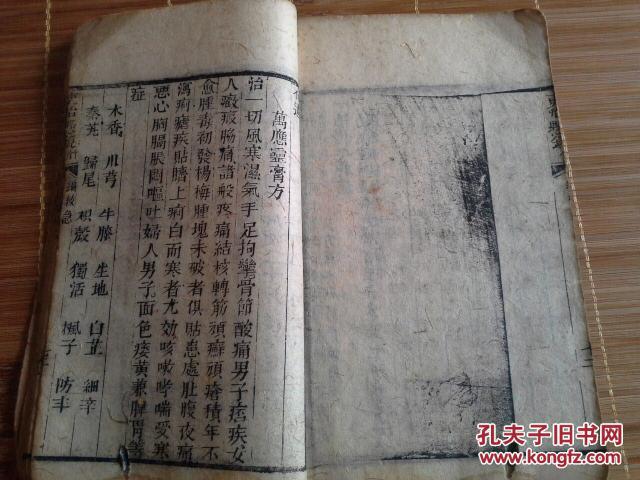 萬應靈膏方
治一切風寒濕氣手足拘攣骨節酸痛男子痞疾女
人癥瘕腸痛諸般疼痛結核轉筋頑癬頑瘡積年不
愈腫毒初發楊梅腫塊未破者俱貼患處肚腹疼痛
瀉痢瘧疾貼臍上痢白而寒者尤效咳嗽哮喘受寒
惡心胸膈脹悶嘔吐婦人男子面色痿黃兼脾胃等
症
木香 川芎 牛膝 生地 白芷 細辛
秦艽 歸尾 枳殼 獨活 楓子 防丰
孔夫子旧书网
www.kongfz.com